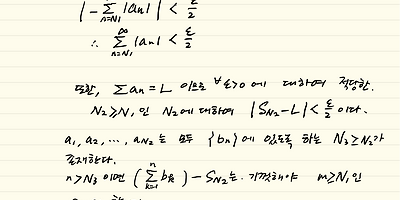 | - Σ_{n=N₁} |aₙ| | < ε/2
∴ Σ_{n=N₁}^{∞} |aₙ| < ε/2
또한, Σaₙ = L 이므로 ∀ε>0 에 대하여 적당한.
N₂≥N₁ 인 N₂에 대하여 |S_{N₂}-L| < ε/2 이다.
a₁, a₂, ⋯, a_{N₂} 는 모두 {bₙ}에 있도록 하는 N₃≥N₂가
존재한다.
n>N₃ 이면 (Σ_{k=1}^{n} bₖ) - S_{N₂}는 기껏해야 m≥N₁인